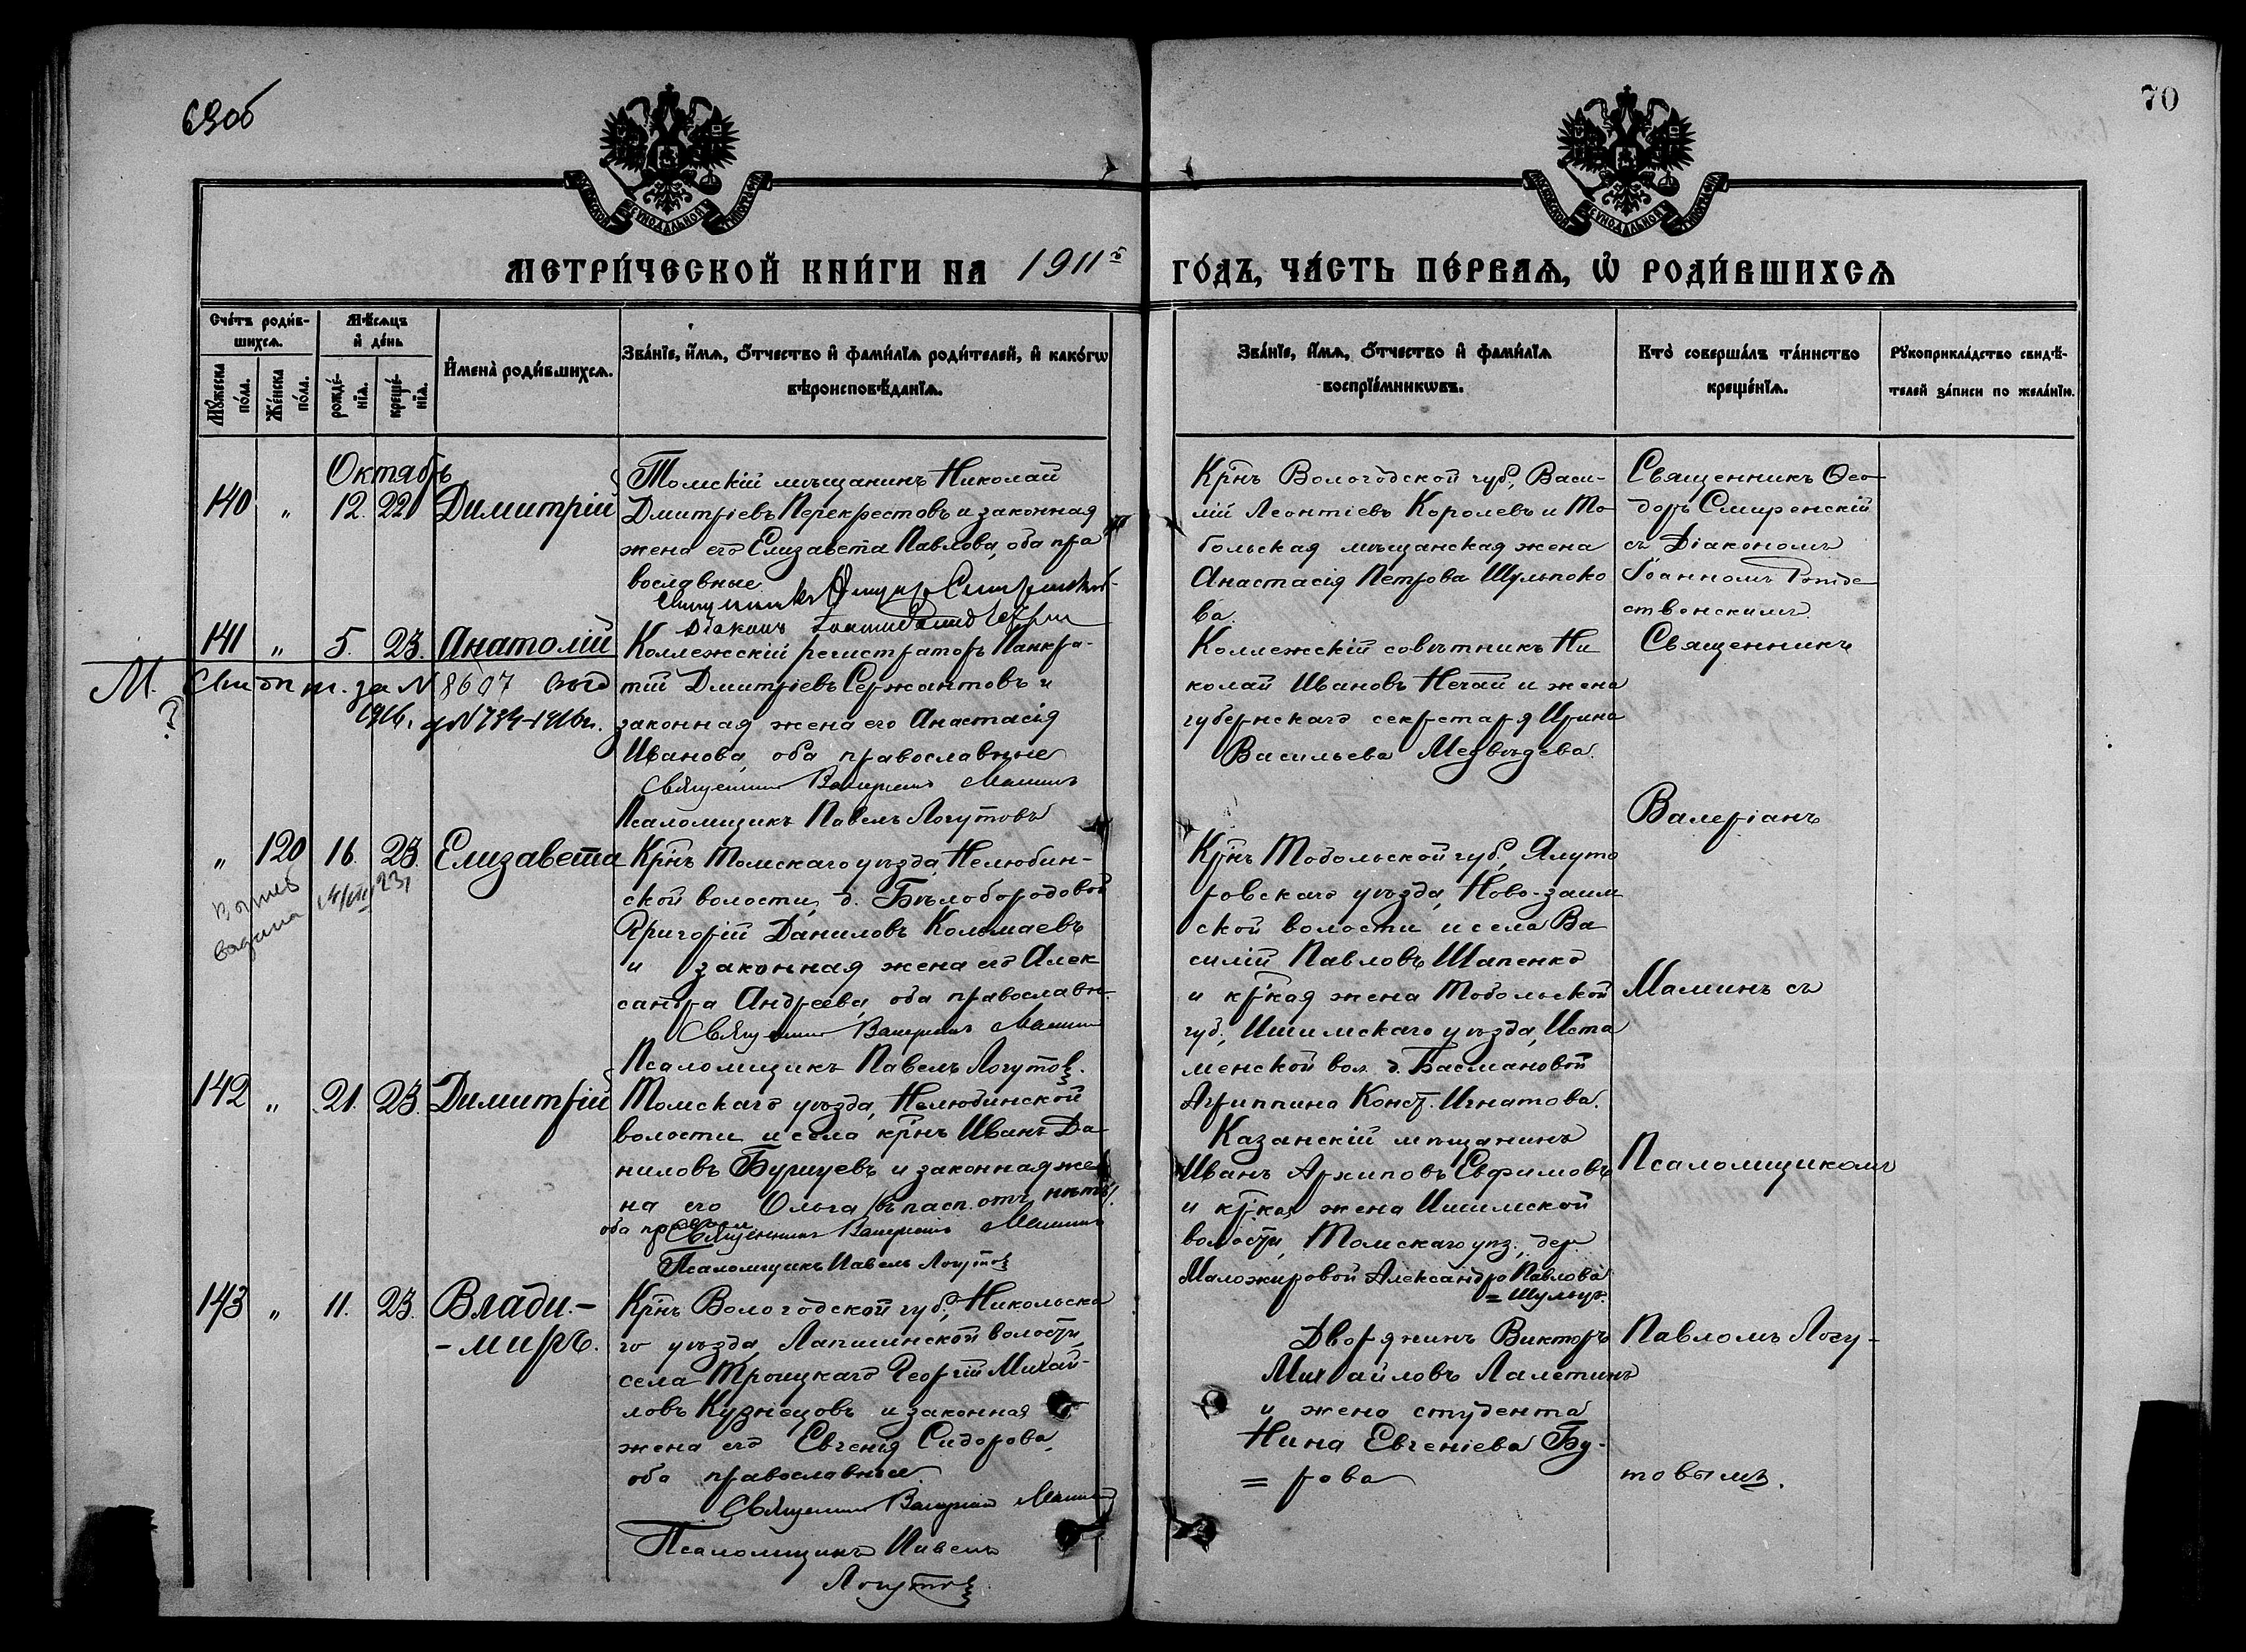 69об
70
МЕТРИ́ЧЕСКОЙ КНИ́ГИ НА 1911й ГО́ДЪ, ЧА́СТЬ ПЕ́РВАѦ, Ѡ҆ РОДИ́ВШИХСѦ
Сче́тъ роди́в-
шихсѧ.
Мꙋ́жеска по́ла.
Же́нска по́ла.
Мѣ́сѧцъ
и҆ де́нь
рожде́-
нїѧ.
креще́-
нїѧ.
И҆мена̀ роди́вшихсѧ.
Зва́нїе, и҆́мѧ, ѻ҆́тчество и҆ фами́лїѧ роди́телей, и҆ како́гѡ
вѣроисповѣ́данїѧ.
Зва́нїе, и҆́мѧ, ѻ҆́тчество и҆ фами́лїѧ
воспрїе́мникѡвъ.
Кто̀ соверша́лъ та́инство
креще́нїѧ.
Рꙋкоприкла́дство свидѣ́-
телей за́писи по жела́нїю.
Октябрь
140 " 12. 22 Димитрій
Томскій мѣщанинъ Николай
Дмитріевъ Перекрестовъ и законная
жена его Елизавета Павлова, оба пра
вославные
Діаконъ
Крнъ Вологодской губ., Васи-
лій Леонтіевъ Королевъ и То-
больская мѣщанская жена
Анастасія Петрова Шульпоко
ва.
Священникъ Ѳео-
доръ Смиренскій
съ Діакономъ
Іоанномъ Рожде
ственскимъ.
141 " 5. 23. Анатолій
Коллежскій регистраторъ Панкра-
тій Дмитріевъ Сержантовъ и
законная жена его Анастасія
Иванова, оба православные
Священникъ Валеріанъ Маминъ
Псаломщикъ Павелъ Логутовъ
М.
?
за № 8607
1916г. № 784-1916г.
Коллежскій совѣтникъ Ни
колай Ивановъ Нечай и жена
губернскаго секретаря Ирина
Васильева Медвѣдева.
Священникъ
Валеріанъ
" 120 16. 23. Елизавета
Крнъ Томскаго уѣзда, Нелюбин-
ской волости, д. Бѣлобородовой
Григорій Даниловъ Колмаевъ
и законная жена его Алек
сандра Андреева, оба православн.
Священникъ Валеріанъ Маминъ
Псаломщикъ Павелъ Логутов.
Крнъ Тобольской губ., Ялуто
ровскаго уѣзда, Ново-заим
ской волости и села Ва
силій Павловъ Шапенко
и кр-кая жена Тобольской
губ., Ишимскаго уѣзда, Уста
менской вол. д. Басмановой
Агриппина Конст. Игнатова.
Маминъ съ
142 " 21. 23. Димитрій
Томскаго уѣзда, Нелюбинской
волости и села крнъ Иванъ Да
ниловъ Бушуевъ и законная же
на его Ольга (въ пасп. отч. нѣтъ),
оба правосл.
Священникъ Валеріанъ Маминъ
Псаломщикъ Павелъ Логутов
Казанскій мѣщанинъ
Иванъ Архиповъ Евфимовъ
и кр-кая жена Ишимской
волости, Томскаго уѣз., дер.
Маложировой Александра Павлова
= Шульц.
Псаломщикомъ
143 " 11. 23. Влади.-
-миръ.
Крнъ Вологодской губ., Никольска
го уѣзда, Лапшинской волости,
села Троицкаго Георгій Михай-
ловъ Кузнецовъ и законная
жена его Евгенія Сидорова,
оба православные.
Священникъ Валеріанъ Маминъ
Псаломщикъ Павелъ
Логутов
Дворянинъ Викторъ
Михайловъ Лалетинъ
и жена студента
Нина Евгеніева Бу-
= рова
Павломъ Логу-
товымъ.